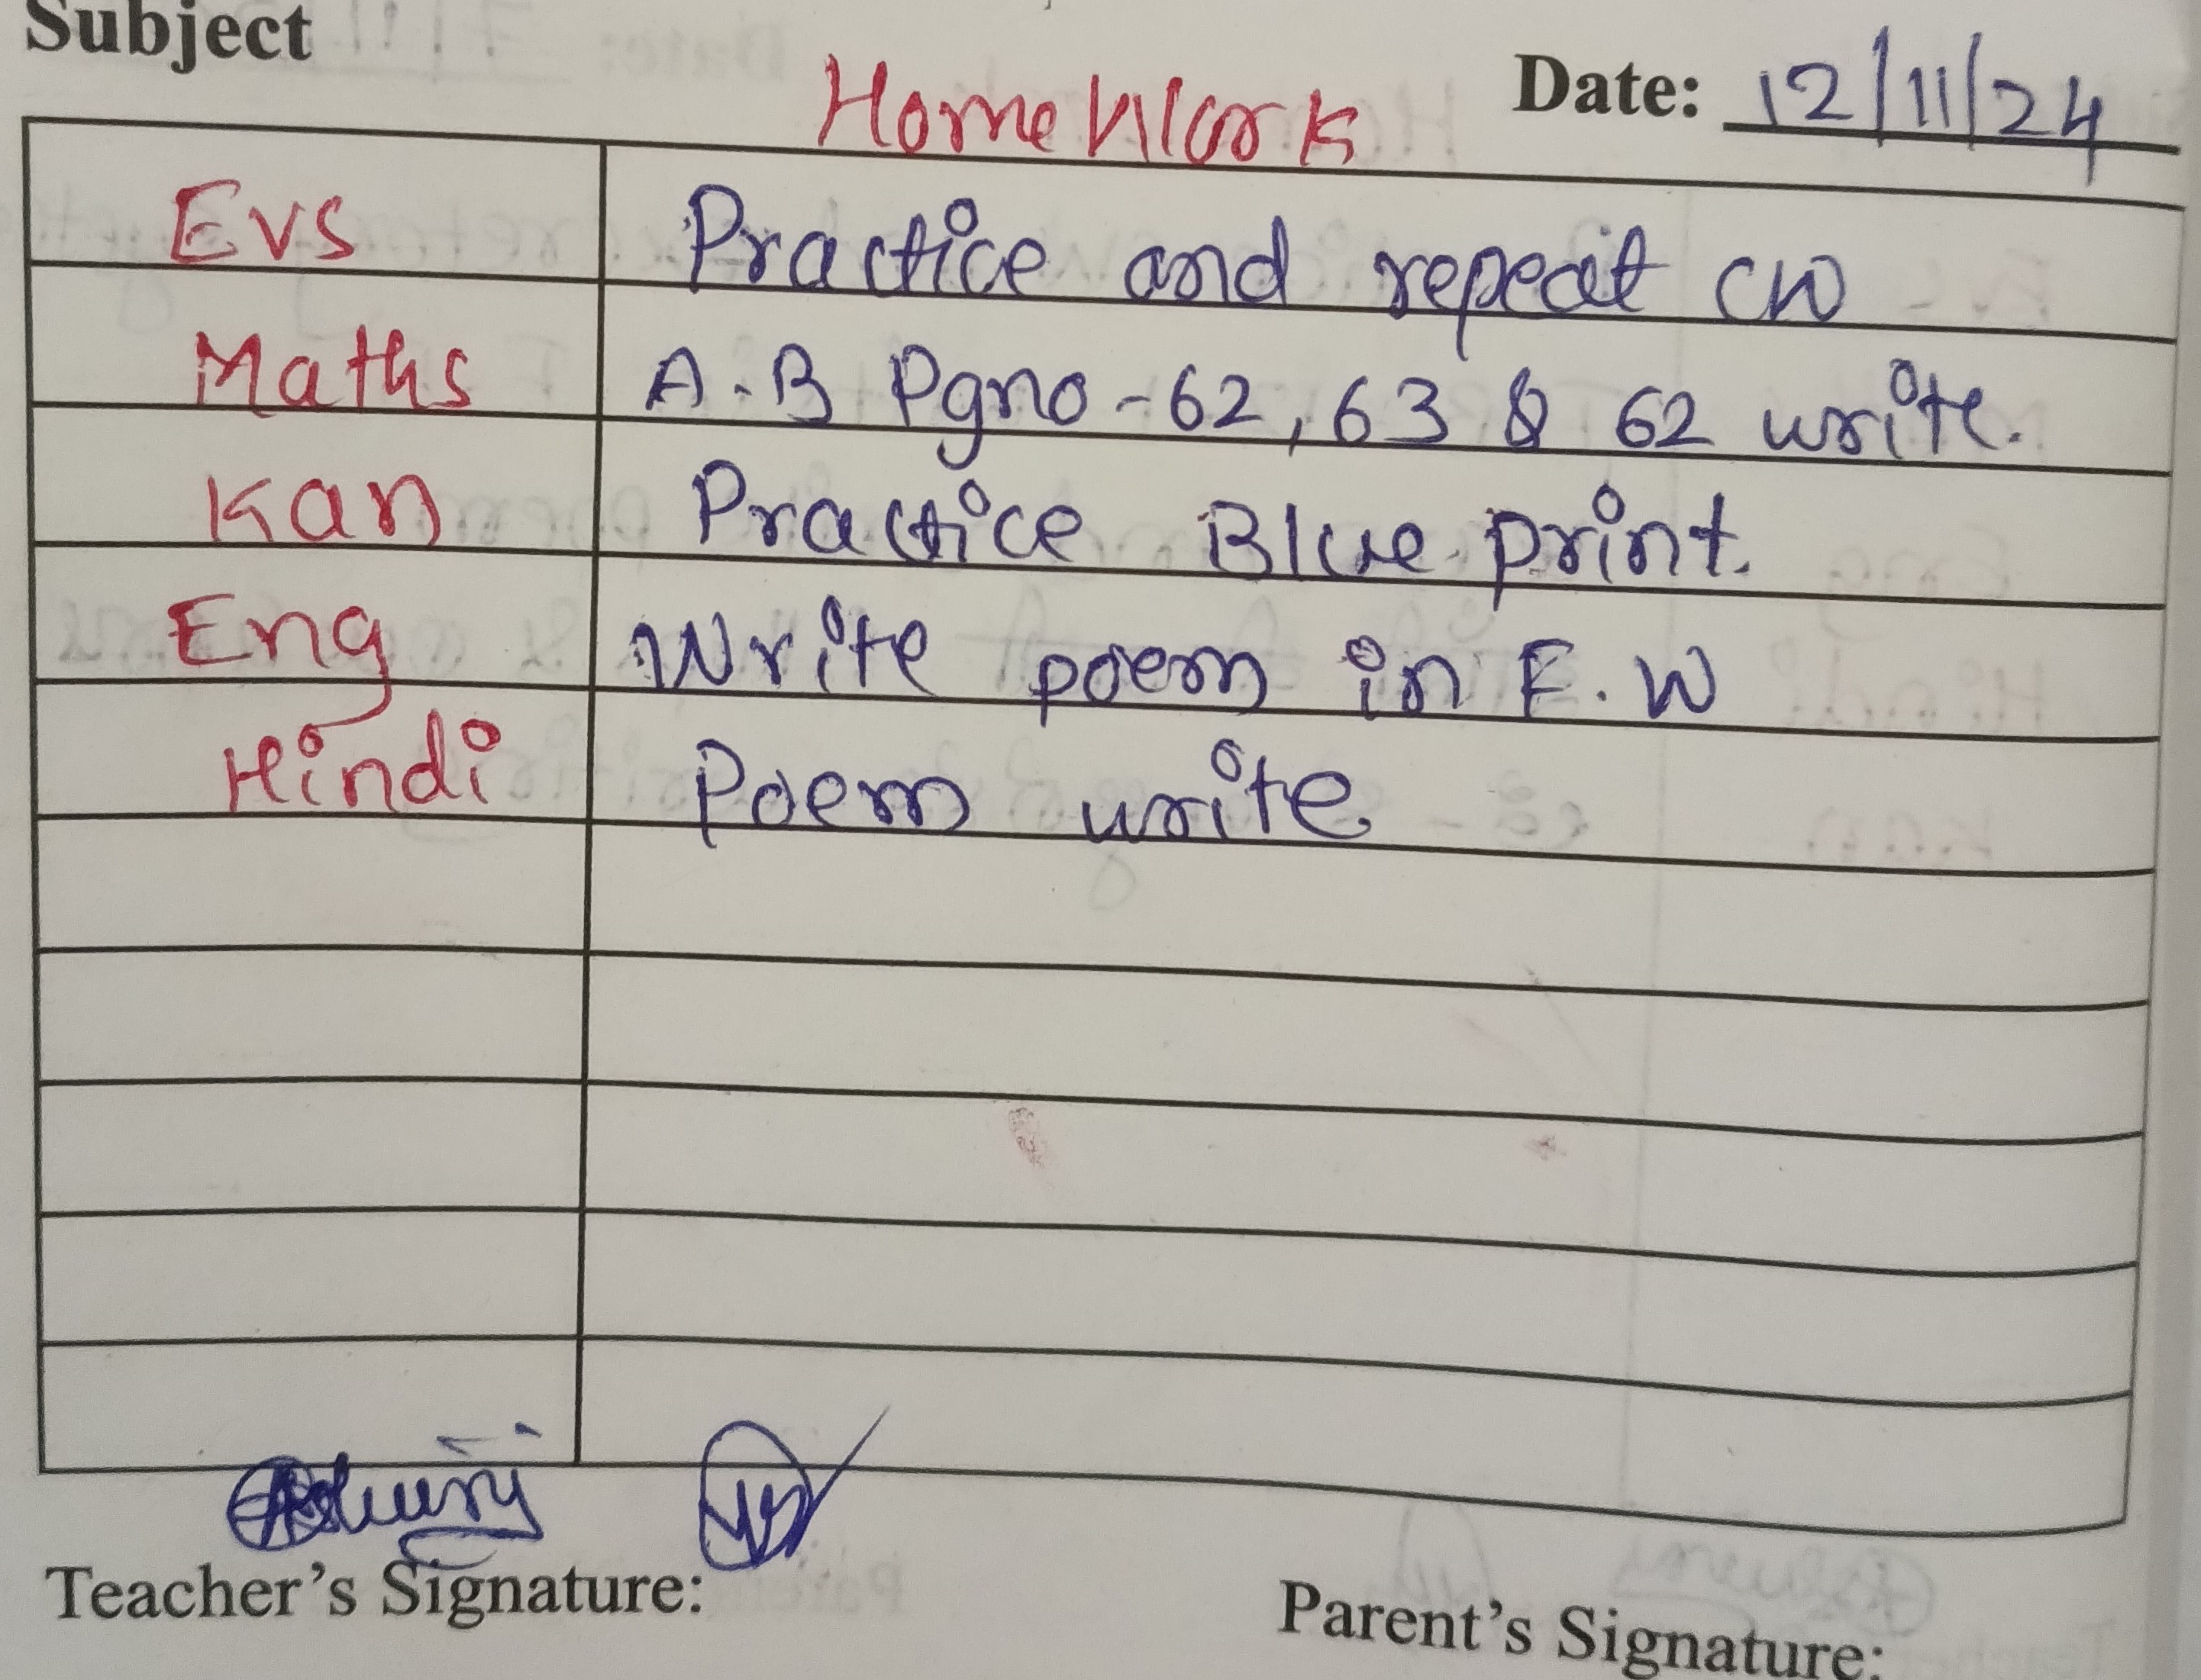 Subject
Home Work
Date: 12/11/24
Evs Practice and repeat CW
Maths A.B Pgno-62, 63 & 62 write.
Kan Practice Blue print.
Eng Write poem in F.W
Hindi Poem write
Teacher's Signature:
Parent's Signature: